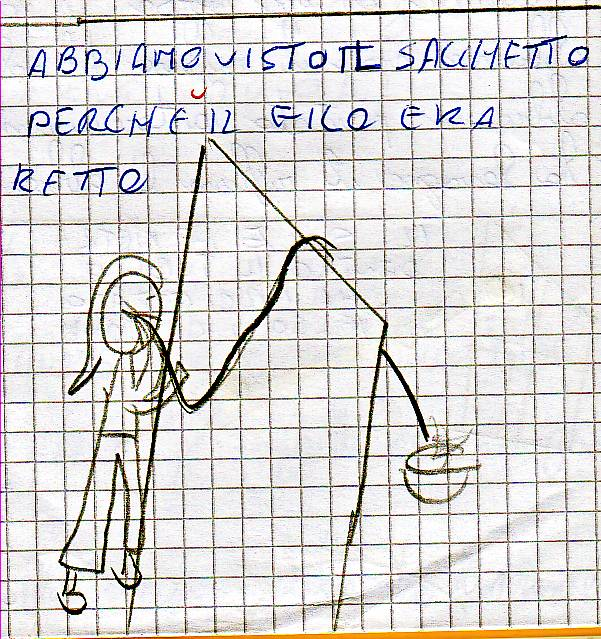 ABBIAMO VISTO IL SACCHETTO
PERCHÈ IL FILO ERA
RETTO